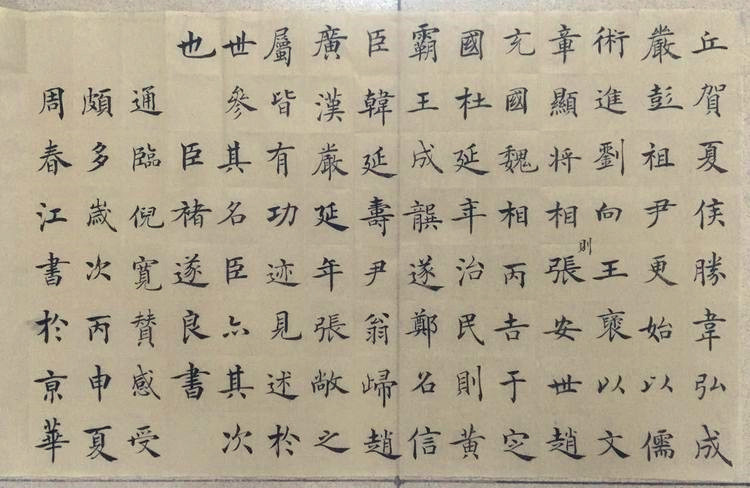 丘賀夏侯勝韋弘成
嚴彭祖尹更始以儒
術進劉向王襃以文
章顯將相則張安世趙
充國魏相丙吉于定
國杜延年治民則黃
霸王成龔遂鄭名信
臣韓延壽尹翁歸趙
廣漢嚴延年張敞之
屬皆有功迹見述於
世參其名臣亦其次
也 臣褚遂良書
通臨倪寬贊感受
頗多歲次丙申夏
周春江書於京華